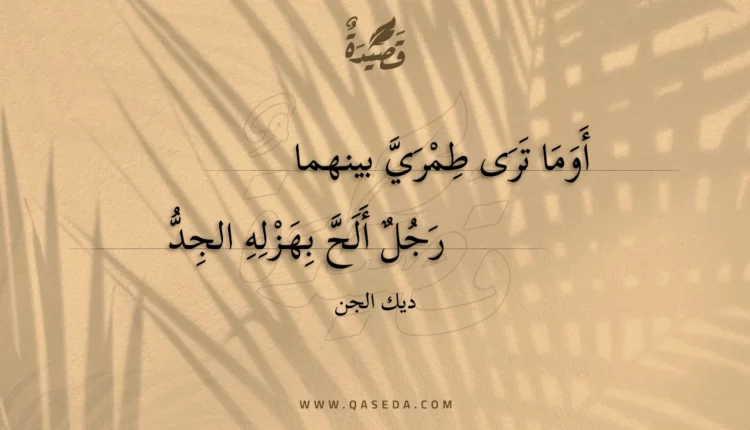 قَصِيْدَةٌ
أَوَمَا تَرَى طِمْرَيَّ بينهما
رَجُلٌ أَلَحَّ بِهَزْلِهِ الجِدُّ
ديك الجن
WWW.QASEDA.COM